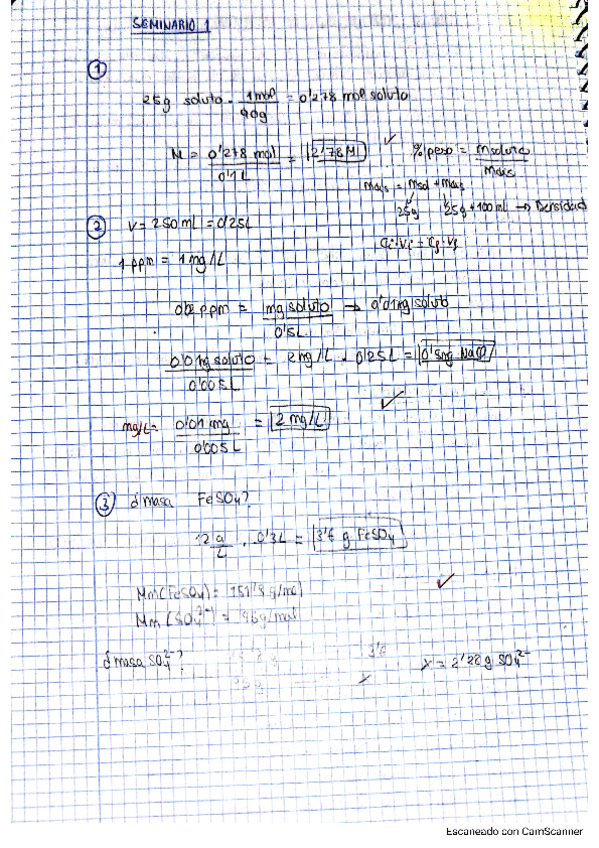 SEMINARIO 1
①
25g soluto · 1 mol / 90g = 0'278 mol soluto
M = 0'278 mol / 0'1 L = 2'78 M ✓
% peso = msoluto / mdis
mdis = msol + mdis
25g 25g + 100 mL → Densidad
Ci·Vi = Cf·Vf
② V = 250 mL = 0'25L
1 ppm = 1 mg/L
0'02 ppm = mg soluto / 0'5L → 0'01 mg soluto
0'01 mg soluto / 0'005 L = 2 mg/L · 0'25L = 0'5 mg NaCl
mg/L = 0'01 mg / 0'005 L = 2 mg/L ✓
③ ¿masa FeSO4?
12 g/L · 0'3L = 3'6 g FeSO4
Mm(FeSO4) = 151'8 g/mol ✓
Mm(SO4 2-) = 96 g/mol
¿masa SO4 2-? 3'6
x x = 2'28 g SO4 2-
Escaneado con CamScanner